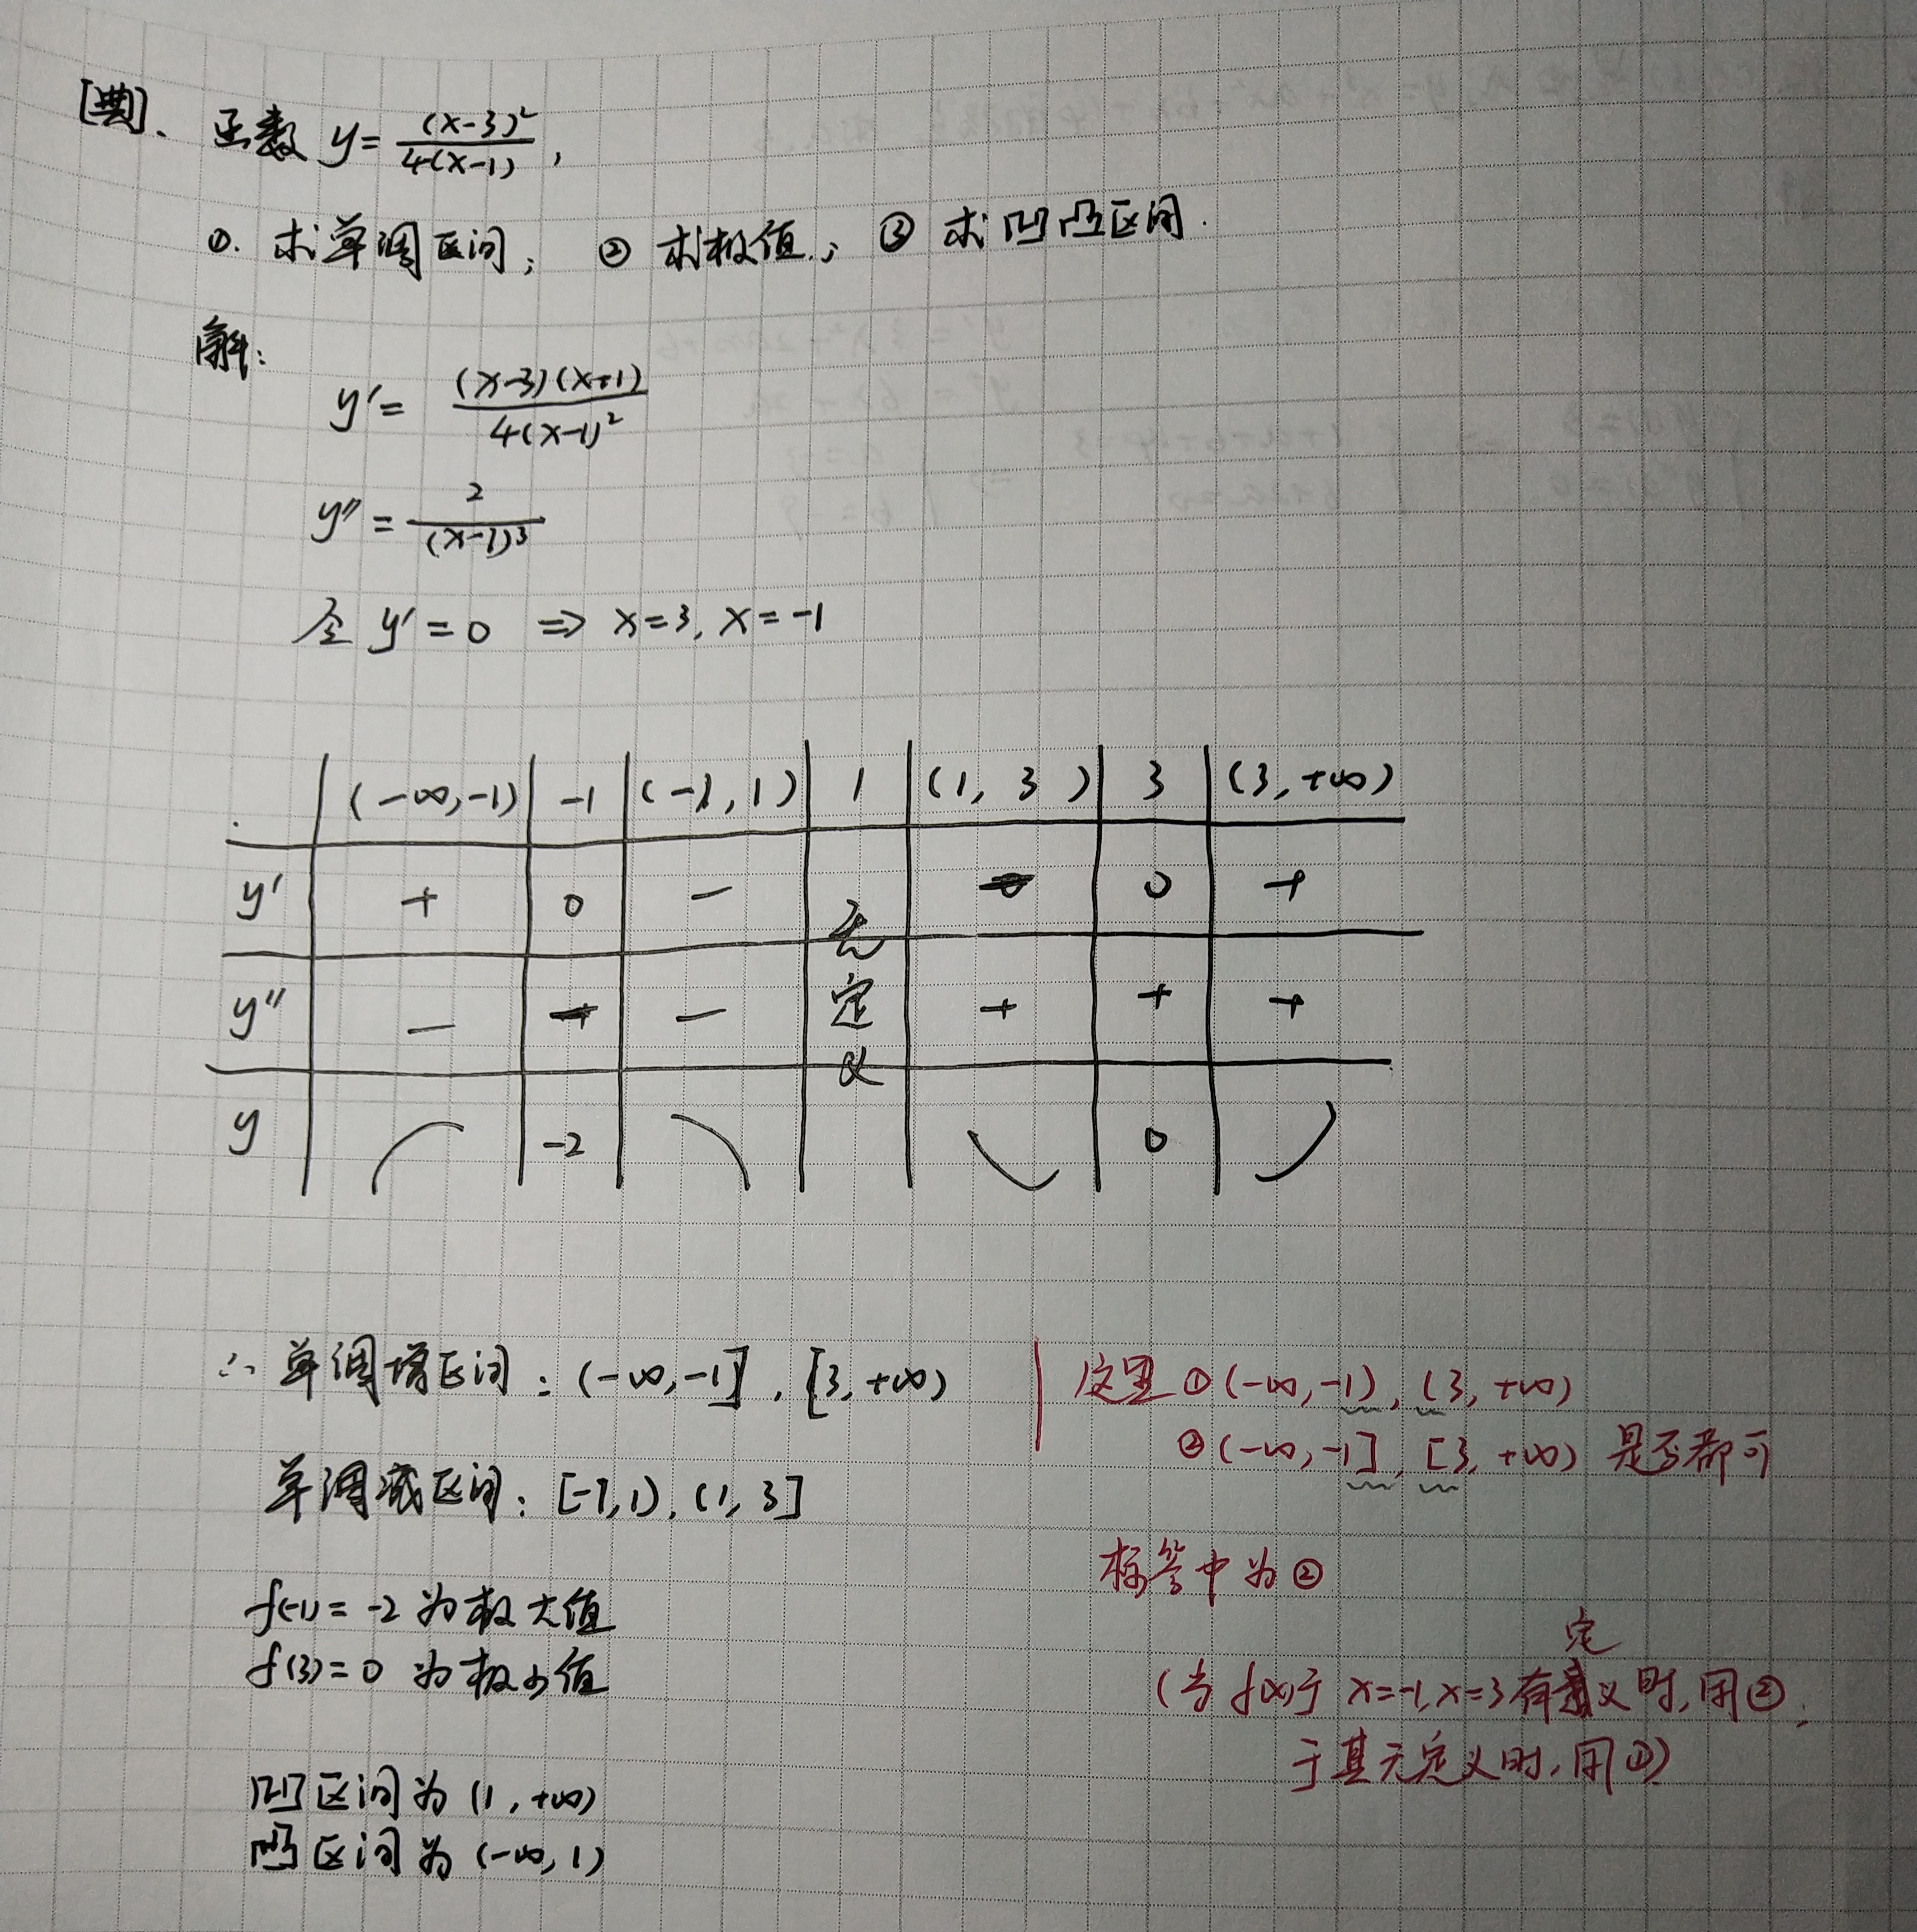 [典]、函数 y = (x-3)²/4(x-1) ,
①. 求单调区间; ② 求极值.; ③ 求凹凸区间.
解:
y' = (x-3)(x+1)/4(x-1)²
y'' = 2/(x-1)³
令 y' = 0 ⇒ x=3, x=-1
(-∞,-1) | -1 | (-1,1) | 1 | (1, 3) | 3 | (3,+∞)
y' | + | 0 | - | 无定义 | - | 0 | +
y'' | - | - | - | + | + | +
y | -2 | 0
∴ 单调增区间: (-∞,-1], [3,+∞)
单调减区间: [-1,1), (1,3]
f(-1) = -2 为极大值
f(3) = 0 为极小值
凹区间为 (1,+∞)
凸区间为 (-∞,1)
这里 ① (-∞,-1), (3,+∞)
② (-∞,-1], [3,+∞) 是否都可
标答中为②
(当 f(x)于 x=-1,x=3 有定义时,用②,
于其无定义时,用①)